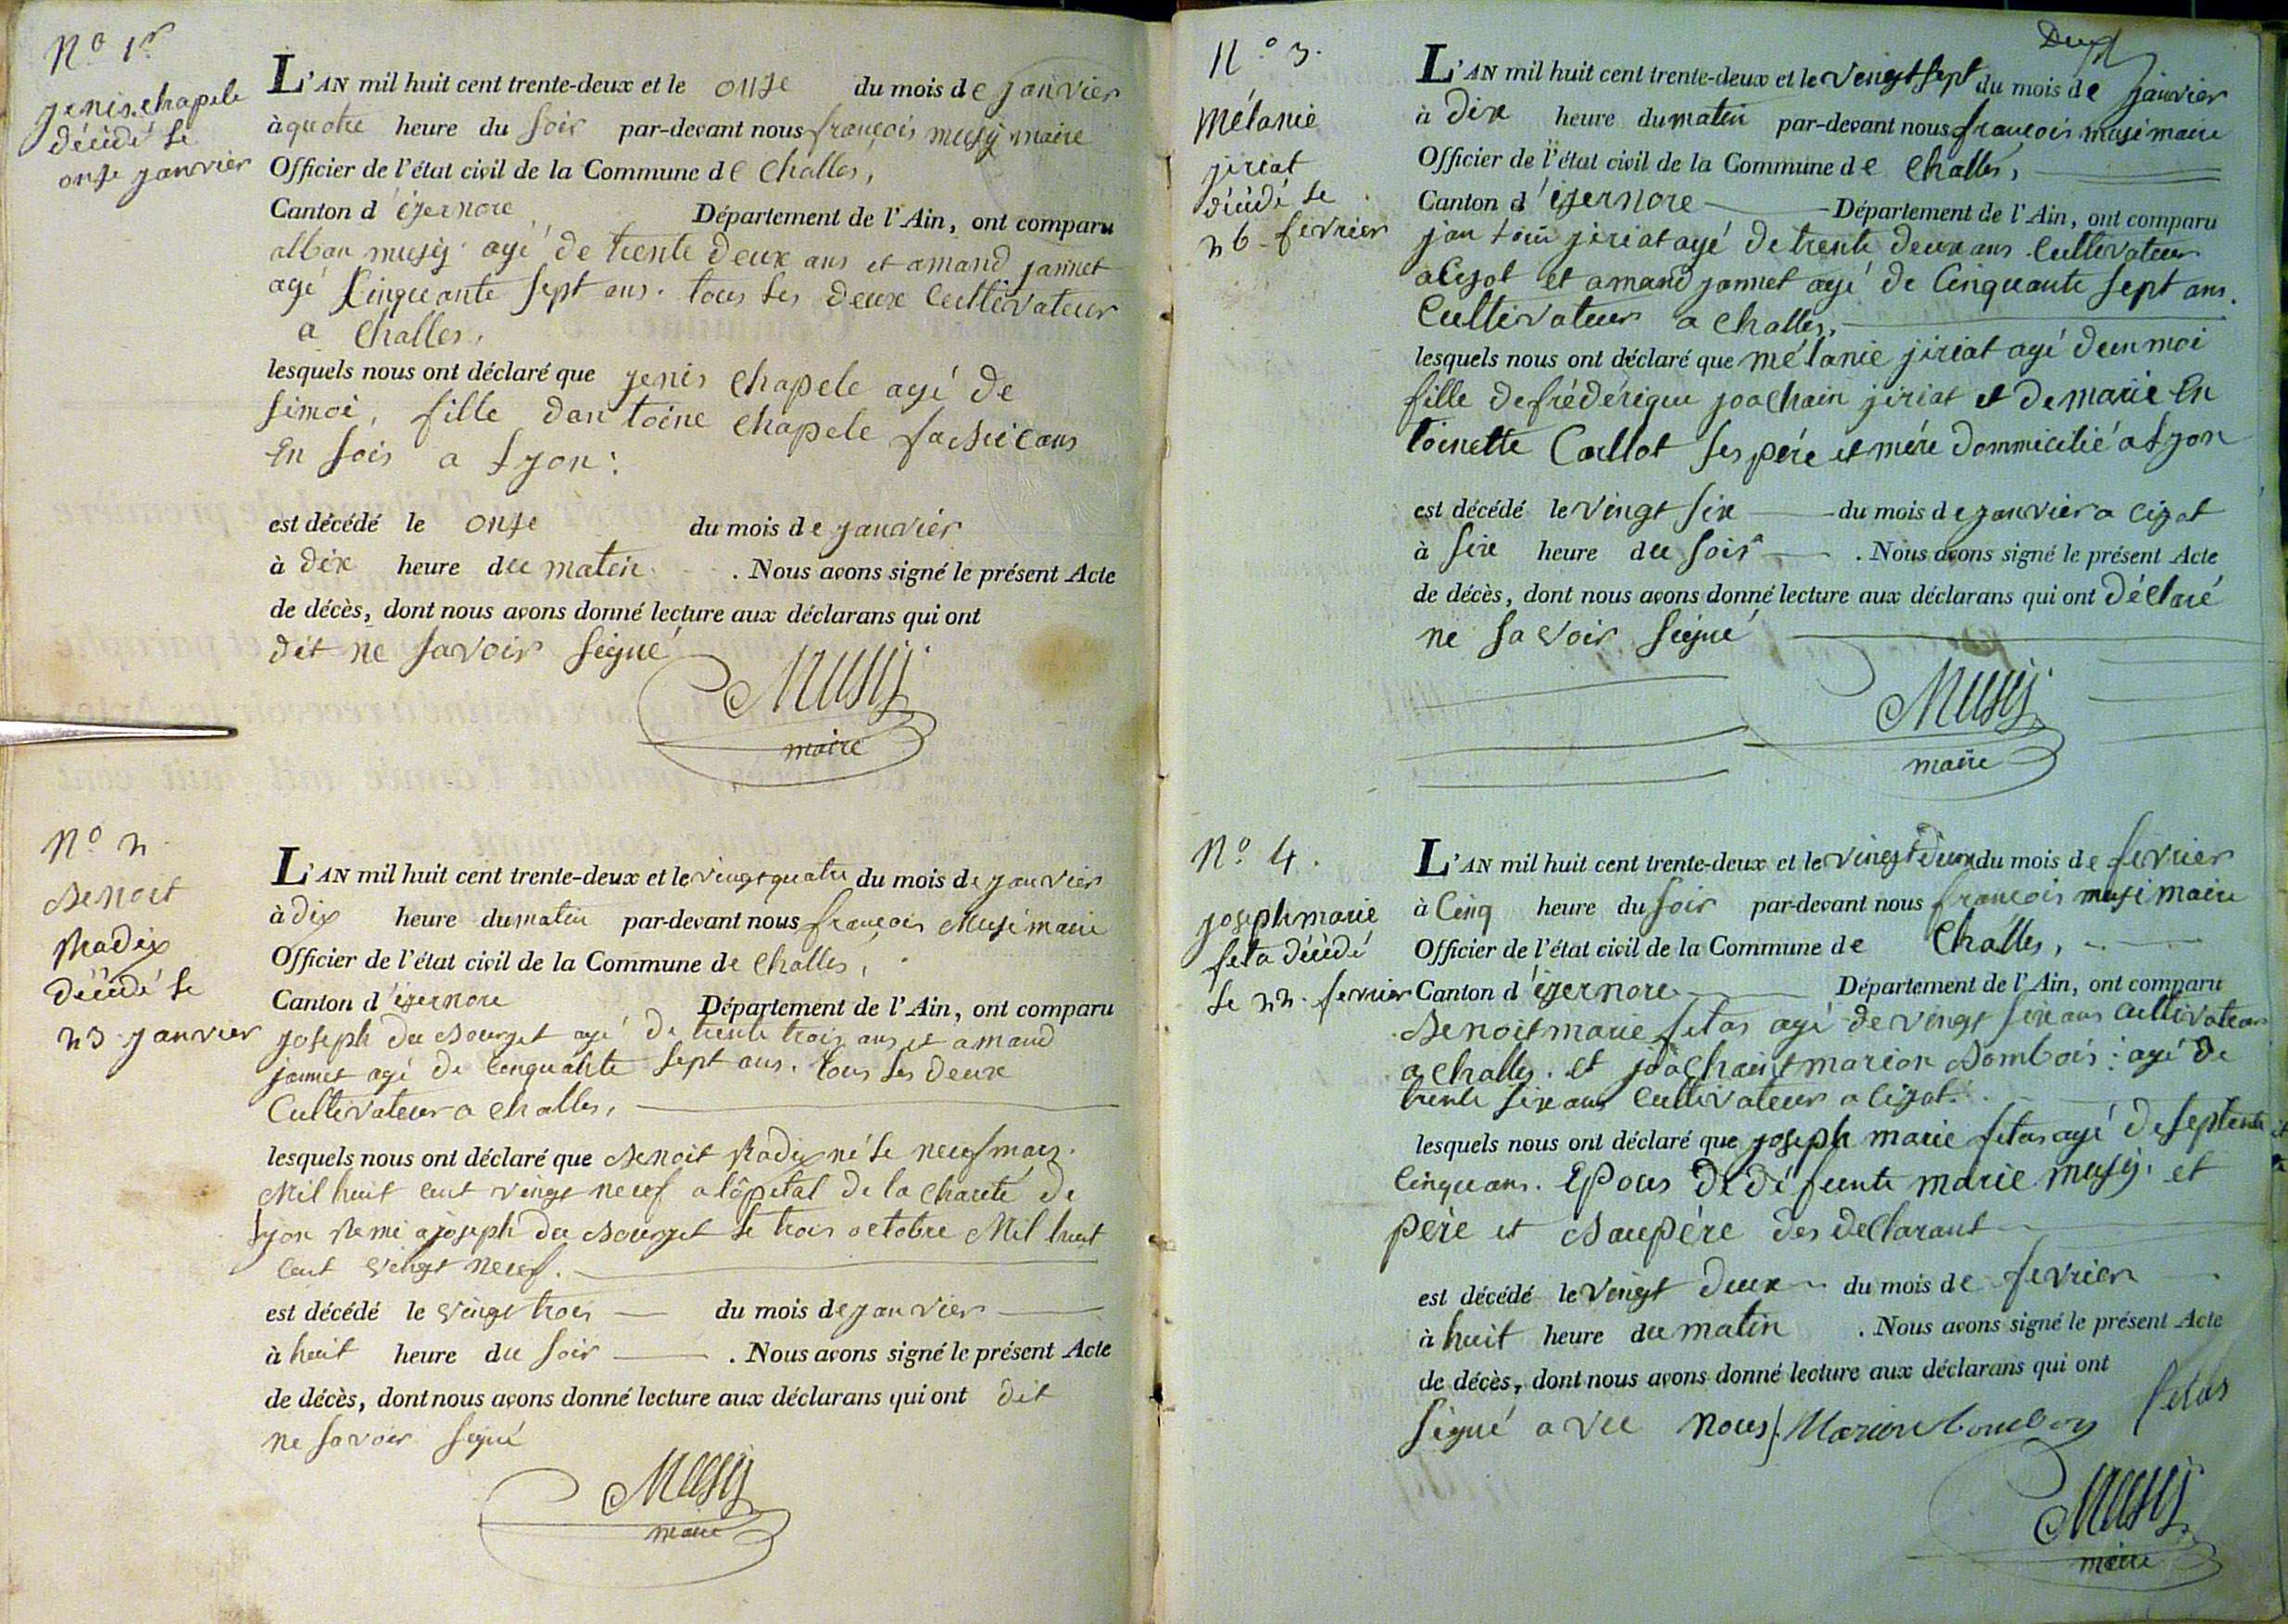 N.o 1er
jenis chapele
décédé le
onze janvier
L'AN mil huit cent trente-deux et le onze du mois de janvier
à quatre heure du soir par-devant nous françois musy maire
Officier de l'état civil de la Commune de Challes,
Canton d'izernore Département de l'Ain, ont comparu
alban musy agé de trente deux ans et amand jannet
agé Cinquante sept ans. tous les deux Cultivateur
a Challes,
lesquels nous ont déclaré que jenis chapele agé de
simoi, fille dantoine chapele
En sois a Lyon:
est décédé le onze du mois de janvier
à dix heure du matin. Nous avons signé le présent Acte
de décès, dont nous avons donné lecture aux déclarans qui ont
dit ne savoir signé
Musy
maire
N.o 2
Benoit
Radix
décédé le
23 janvier
L'AN mil huit cent trente-deux et le vingt quatre du mois de janvier
à dix heure du matin par-devant nous françois Musi maire
Officier de l'état civil de la Commune de Challes,
Canton d'izernore Département de l'Ain, ont comparu
joseph du Bourget agé de trente trois ans et amand
jannet agé de Cenquante sept ans. tous les deux
Cultivateur a Challes,
lesquels nous ont déclaré que Benoit Radix né le neuf mars
Mil huit cent vingt neuf a lôpetal de la Charité de
Lyon Remi a joseph du Bourget le trois octobre Mil huit
Cent vingt neuf.
est décédé le vingt trois du mois de janvier
à huit heure du soir. Nous avons signé le présent Acte
de décès, dont nous avons donné lecture aux déclarans qui ont dit
ne savoir signé
Musy
maire
Deux
N.o 3.
Mélanie
jiriat
décédé le
26 fevrier
L'AN mil huit cent trente-deux et le vingt sept du mois de janvier
à dix heure du matin par-devant nous françois musi maire
Officier de l'état civil de la Commune de Challes,
Canton d'izernore Département de l'Ain, ont comparu
jiriat agé de trente deux ans. Cultivateur
a Cizot et amand jannet agé de Cinquante sept ans.
Cultivateur a Challes,
lesquels nous ont déclaré que mélanie jiriat agé deun moi
fille de frédérique joachain jiriat et de marie En
toinette Callot ses pére et mére dommicilié a Lyon
est décédé le vingt six du mois de janvier a Cizot
à six heure du soir. Nous avons signé le présent Acte
de décès, dont nous avons donné lecture aux déclarans qui ont déclaré
ne savoir signé
Musy
maire
N.o 4.
joseph marie
feta décédé
le 22 fevrier
L'AN mil huit cent trente-deux et le vingt deux du mois de fevrier
à Cinq heure du soir par-devant nous françois musi maire
Officier de l'état civil de la Commune de Challes,
Canton d'izernore Département de l'Ain, ont comparu
Benoit marie fetas agé de vingt six ans Cultivateur
a Challes. et joachaint marion Bombois: agé de
trente six ans Cultivateur a Cizot.
lesquels nous ont déclaré que joseph marie fetas agé de septente et
Cinque ans. Epous de défeunte marie musy. et
père et Baupére des declarant
est décédé le vingt deux du mois de fevrier
à huit heure du matin. Nous avons signé le présent Acte
de décès, dont nous avons donné lecture aux déclarans qui ont
signé avec nous. Marion bombois fetas
Musy
maire